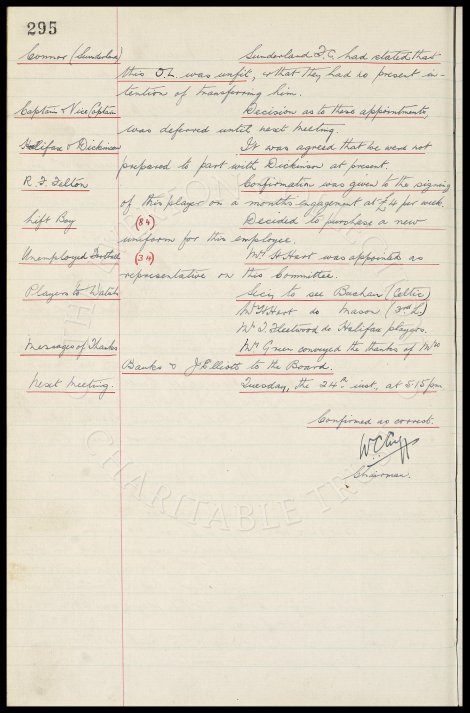 295
Connor (Sunderland) Sunderland F.C. had stated that
this O.L. was unfit, & that they had no present in-
tention of transferring him.
Captain & Vice Captain Decision as to these appointments
was deferred until next meeting.
Halifax & Dickinson It was agreed that we were not
prepared to part with Dickinson at present.
R. F. Felton Confirmation was given to the signing
of this player on a months engagement at £4 per week.
Lift Boy (84) Decided to purchase a new
uniform for this employee.
Unemployed Football (34) Mr W Hart was appointed as
representative on this Committee.
Players to Watch Secy to see Buchan (Celtic)
Mr W Hart do Mason (3rd L.)
Mr J. Fleetwood do Halifax players.
Messages of Thanks Mr Green conveyed the thanks of Mrs
Banks & J Elliott to the Board.
Next Meeting. Tuesday, the 24th inst, at 5.15pm
Confirmed as correct.
W C Cuff
Chairman.
CHARITABLE